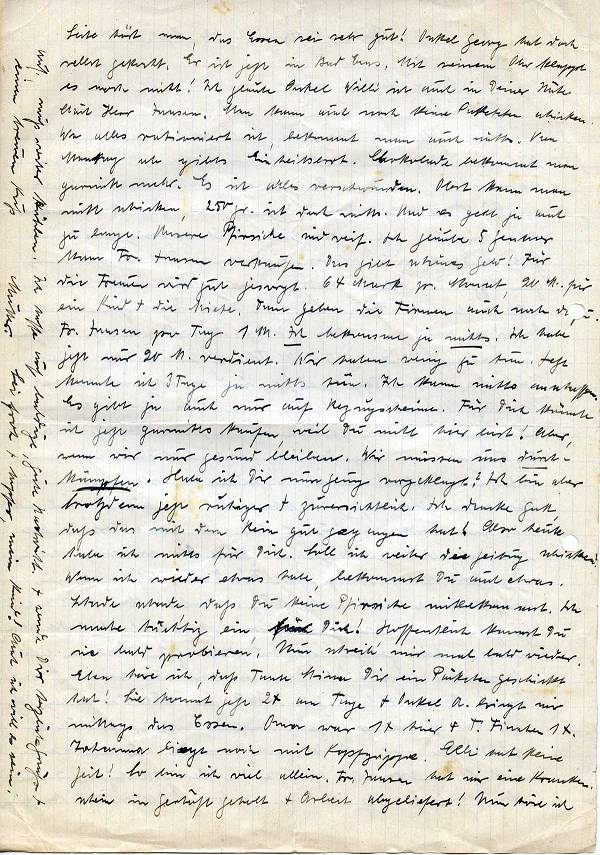 Seite hört man, das Essen sei sehr gut! Onkel Georg hat doch
selbst gekocht. Er ist jetzt in Bad Ems. Mit seinem Ohr klappt
es noch nicht! Ich glaube Onkel Willi ist auch in Deiner Nähe
Herr Jansen. Man kann auch noch keine Paketchen schicken.
Wo alles rationiert ist, bekommt man auch nichts. Von
Montag ab gibts Einheitsbrot. Chokolade bekommt man
garnicht mehr. Es ist alles verschwunden. Obst kann man
nicht schicken, 250 gr. ist doch nichts. Und es geht ja auch
zu lange. Unsere Pfirsiche sind reif. Ich glaube 5 Zentner
kann Fr. Jansen verkaufen. Das gibt schönes Geld! Für
die Frauen wird gut gesorgt. 64 Mark pr. Monat, 20 M. für
ein Kind + die Miete. Dann geben die Firmen auch noch dazu.
Fr. Jansen pro Tag 1 M. Ich bekomme ja nichts. Ich habe
jetzt nur 20 M. verdient. Wir haben wenig zu tun. Jetzt
konnte ich 3 Tage ja nichts tun. Ich kann nichts anschaffen.
Es gibt ja auch nur auf Bezugscheine. Für Dich könnte
ich jetzt garnichts kaufen, weil Du nicht hier bist! Aber,
wenn wir nur gesund bleiben. Wir müssen uns durch-
kämpfen. Habe ich Dir nun genug vorgeklagt? Ich bin aber
trotzdem jetzt ruhiger + zuversichtlich. Ich danke Gott,
daß das mit dem Bein gut gegangen hat! Also heute
habe ich nichts für Dich. Soll ich weiter die Zeitung schicken?
Wenn ich wieder etwas habe, bekommst Du auch etwas.
schade daß Du keine Pfirsiche mitbekommst. Ich
mache tüchtig ein, für Dich! Hoffentlich kannst Du
sie bald probieren. Nun schreib mir mal bald wieder.
Eben höre ich, daß Tante Mina Dir ein Paketchen geschickt
hat! Sie kommt jetzt 2x am Tage + Onkel A. bringt mir
mittags das Essen. Oma war 1x hier + T. Finchen 1x.
Johanna liegt noch mit Kopfgrippe. Elli hat keine
Zeit! So bin ich viel allein. Fr. Jansen hat mir eine Kranken-
schein im Geschäft geholt + Arbeit abgeliefert! Nun höre ich
auf, muß weiter kühlen. Ich hoffe auf baldige, gute Nachricht + sende Dir herzliche Grüße +
einen treuen Kuß Mutter
Sei froh + tapfer, mein Kind! Auch ich will es sein.